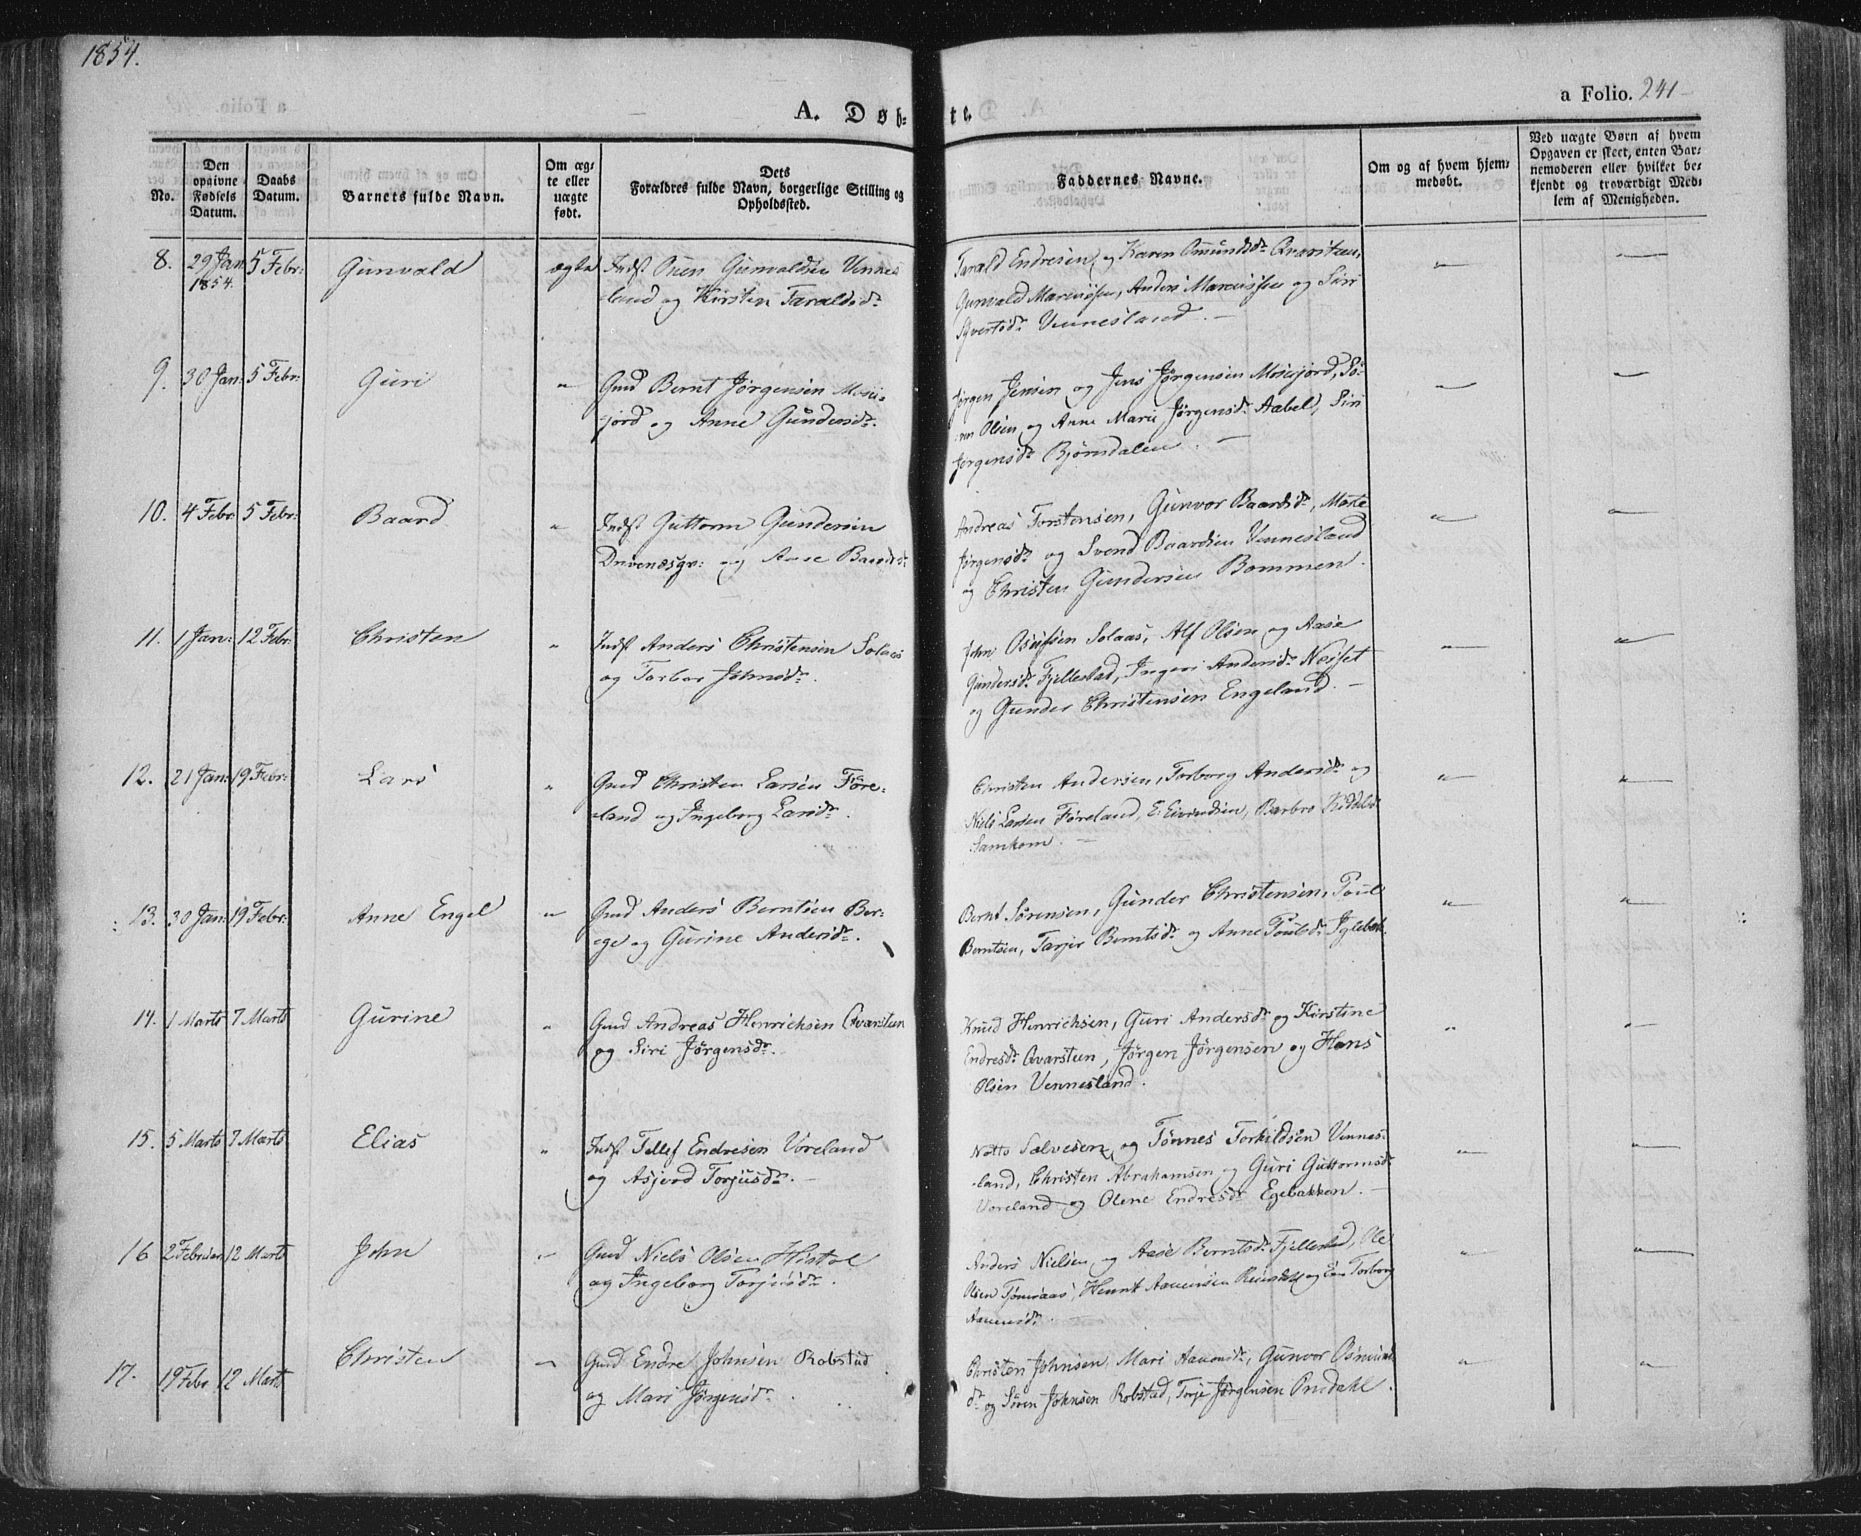 1854.
a Folio. 241
A. Døb-te.
No.
Den opgivne Fødsels Datum.
Daabs Datum.
Barnets fulde Navn.
Om ægte eller uægte født.
Dets Forældres fulde Navn, borgerlige Stilling og Opholdssted.
Faddernes Navne.
Om og af hvem hjemmedøbt.
Ved uægte Børn af hvem Opgaven er skeet, enten Barnemoderen eller hvilket bekjendt og troværdigt Medlem af Menigheden.
8. 29 Jan: 1854. 5 Febr: Gunvald ægte Indst Ouen Gunvaldsen Vennes
land og Kirsten Taraldsdr.
Tarald Endresen og Karen Omundsdr Qvarsteen,
Gunvald Marcussen, Anders Marcussen og Siri
Syvertsdr Vennesland. —
9. 30 Jan: 5 Febr: Guri " Gmd Bernt Jørgensen Mosei-
jord og Anne Gundersdr.
Jørgen Jensen og Jens Jørgensen Moseijord, Sö-
ren Olsen og Anne Marie Jørgensdr Aabel, Siri
Jørgensdr Bjørndalen. —
10. 4 Febr: 5 Febr: Baard " Indst Guttorm Gundersen
Drivenæsgr: og Aase Baardsdr
Andreas Torstensen, Gunvor Baardsdr, Marte
Jørgensdr og Svend Baardsen Vennesland
og Christen Gundersen Bommen.
11. 1 Jan: 12 Febr: Christen " Indst Anders Christensen Solaas
og Torbor Johnsdr.
John Osufsen Solaas, Alf Olsen og Aase
Gundersdr Fjellestad, Ingeri Andersdr Nesset
og Gunder Christensen Engeland. —
12. 21 Jan: 19 Febr: Lars " Gmd Christen Larsen Føre-
land og Ingeborg Larsdr.
Christen Andersen, Torborg Andersdr og
Niels Larsen Føreland, E. Eivindsen, Barbro Kiddelsdr
Samkom. —
13. 30 Jan: 19 Febr: Anne Engel " Gmd Anders Berntsen Bor-
ge og Gurine Andersdr.
Bernt Sørensen, Gunder Christensen, Poul
Berntsen, Tarjer Berntsdr og Anne Poulsdr Iglebæk.
14. 1 Marts 7 Marts Gurine " Gmd Andreas Henrichsen Qvarsteen
og Siri Jørgensdr.
Knud Henrichsen, Guri Andersdr og Kirstine
Endresdr Qvarsteen, Jørgen Jørgensen og Hans
Olsen Vennesland.
15. 5 Marts 7 Marts Elias " Indst Tellef Endresen Voreland
og Asjerd Torjusdr. —
Notto Salvesen og Tønnes Torkildsen Vennes-
land, Christen Abrahamsen og Guri Guttormsdr
Voreland og Olene Endresdr Egebakken. —
16 2 Februar 12 Marts John " Gmd Niels Olsen Histøl
og Ingeborg Torjusdr.
Anders Nielsen og Aase Berntsdr Fjellestad, Ole
Olsen Tjomsaas, Henrik Aanensen og Torborg
Aanensdr.
17. 19 Febr 12 Marts Christen " Gmd Endre Johnsen Robstad
og Mari Jørgensdr.
Christen Johnsen, Mari Aanonsdr, Gunvor Osmunds
dr og Søren Johnsen Robstad, Torje Jørgensen Omdahl.